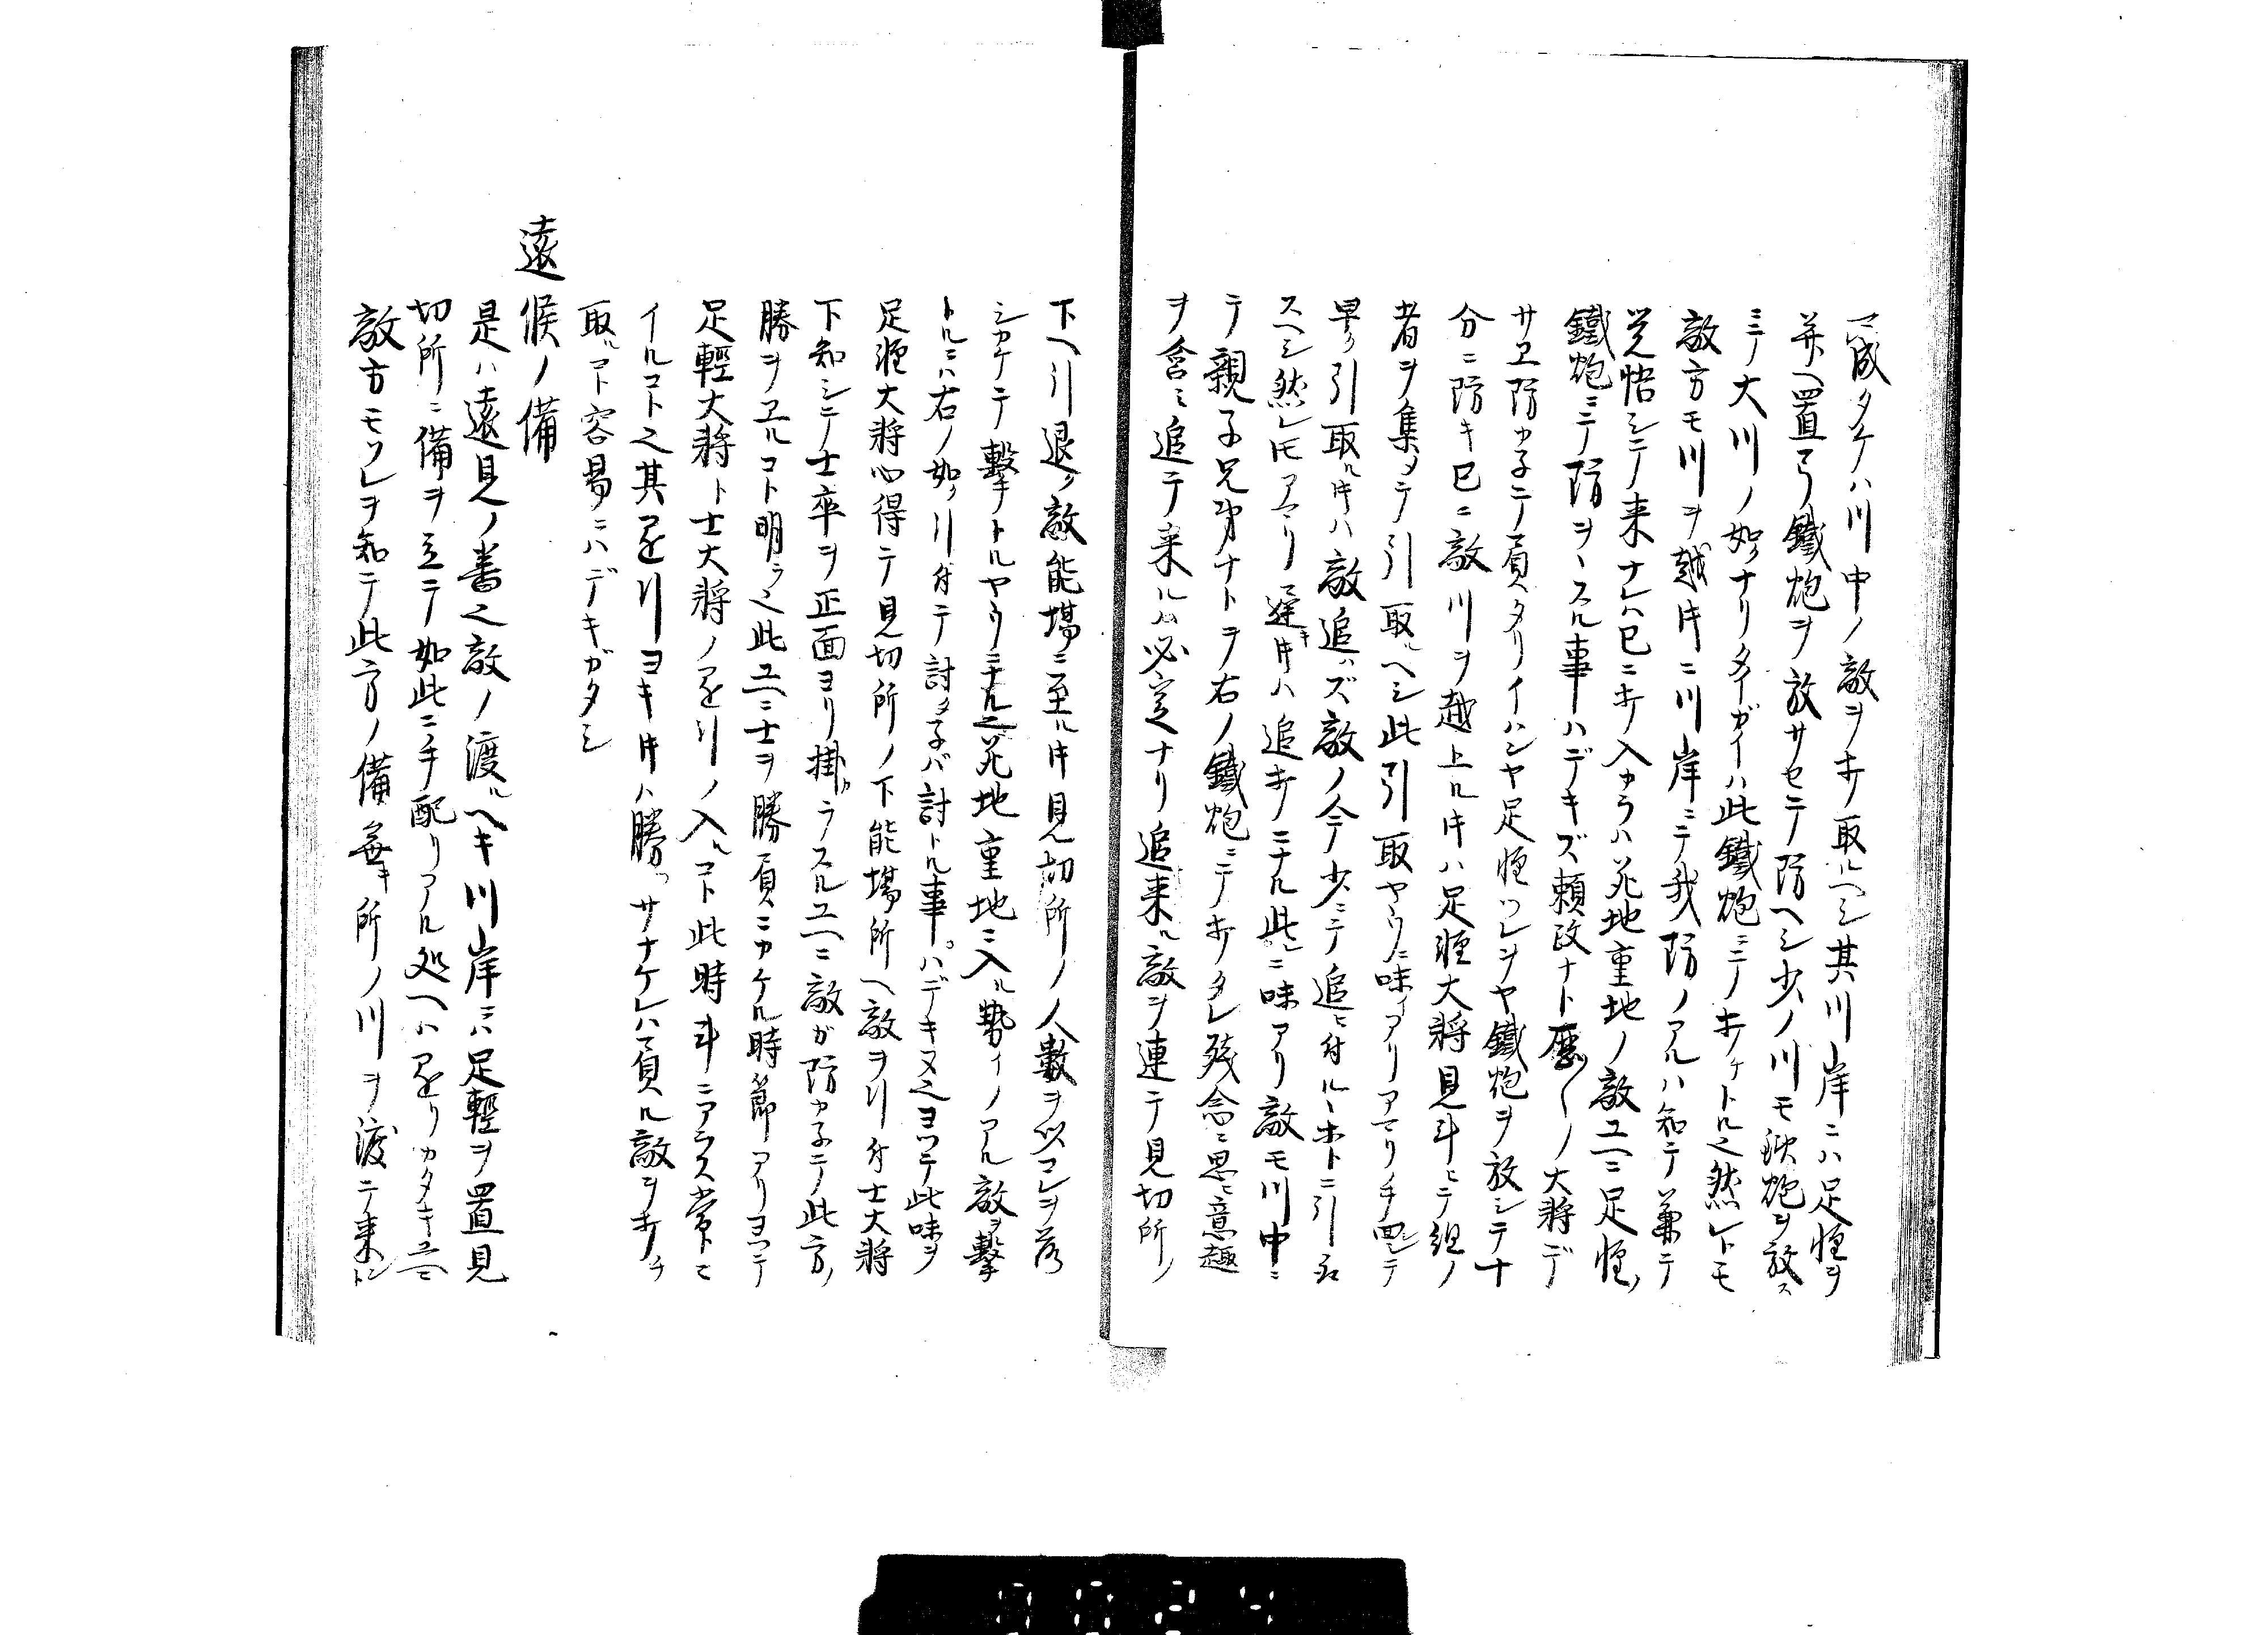 成タケハ川中ノ敵ヲ打取ルヘシ其川岸ニハ足軽ヲ
并ヘ置テ鐵炮ヲ放サセテ防ヘシ少ノ川モ鉄炮ヲ放ス
ニテ大川ノ如クナリタイガイハ此鐵炮ニテ打ケトル之然レトモ
敵方モ川ヲ越ルキニ川岸ニテ我防ノアルハ知テ兼テ
覚悟シテ来ナレハ已ニ打入カラハ死地重地ノ敵ユヘニ足軽ノ
鐵炮ニテ防ヲヽスル事ハデキズ頼政ナト歴〱ノ大将デ
サヱ防カ子テ負タリイハンヤ足軽ツレヲヤ鐵炮ヲ放シテ十
分ニ防キ已ニ敵川ヲ越上ルキハ足軽大将見斗ヒテ組ノ
者ヲ集メテ引取ヘシ此引取ヤウニ味イアリアマリ手回シテ
早ク引取ルキハ敵追ハズ敵ノ今少ニテ追ヒ付ルヽホトニ引取
スヘシ然レ𪜈アマリ遅キキハ追打ニナル此ニ味アリ敵モ川中ニ
テ親子兄弟ナトヲ右ノ鐵炮ニテ打タレ残念ニ思ヒ意趣
ヲ含ミ追テ来ルハ必定ナリ追来ル敵ヲ連テ見切所ノ
下ヘ引退ク敵能場ニ至ルキ見切所ノ人数ヲ以コレヲ落
シカケテ撃トルヤウニナル之死地重地ニ入ル勢イノアル敵ヲ撃
トルニハ右ノ如ク引付テ討タ子バ討トル事ハデキヌ之ヨツテ此味ヲ
足軽大将心得テ見切所ノ下能場所ヘ敵ヲ引付士大将
下知シテ士卒ヲ正面ヨリ掛ラスルユヘニ敵ガ防カ子テ此方ノ
勝ヲヱルコト明ラ之此ユヘニ士ヲ勝負ニカケル時節アリヨツテ
足輕大将ト士大将ノ足引ノ入ルコト此時斗ニアラス常トモ
イルコト之其足引ヨキキハ勝ツサナケレハ負ル敵ヲ打チ
取ルコト容易ニハデキガタシ
遠候ノ備
是ハ遠見ノ番之敵ノ渡ルヘキ川岸ニハ足輕ヲ置見
切所ニ備ヲ立テ如此ニ手配リアル処ヘハ足リカタキユヘニ
敵方モソレヲ知テ此方ノ備無キ所ノ川ヲ渡テ来ント